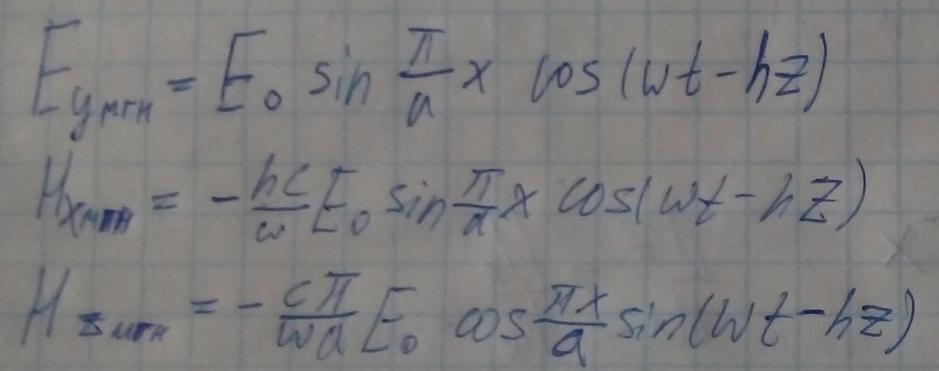 E_yмгн = E_0 sin π/a x cos(wt-hz)
H_xмгн = - hc/w E_0 sin π/a x cos(wt-hz)
H_zмгн = - cπ/wa E_0 cos πx/a sin(wt-hz)